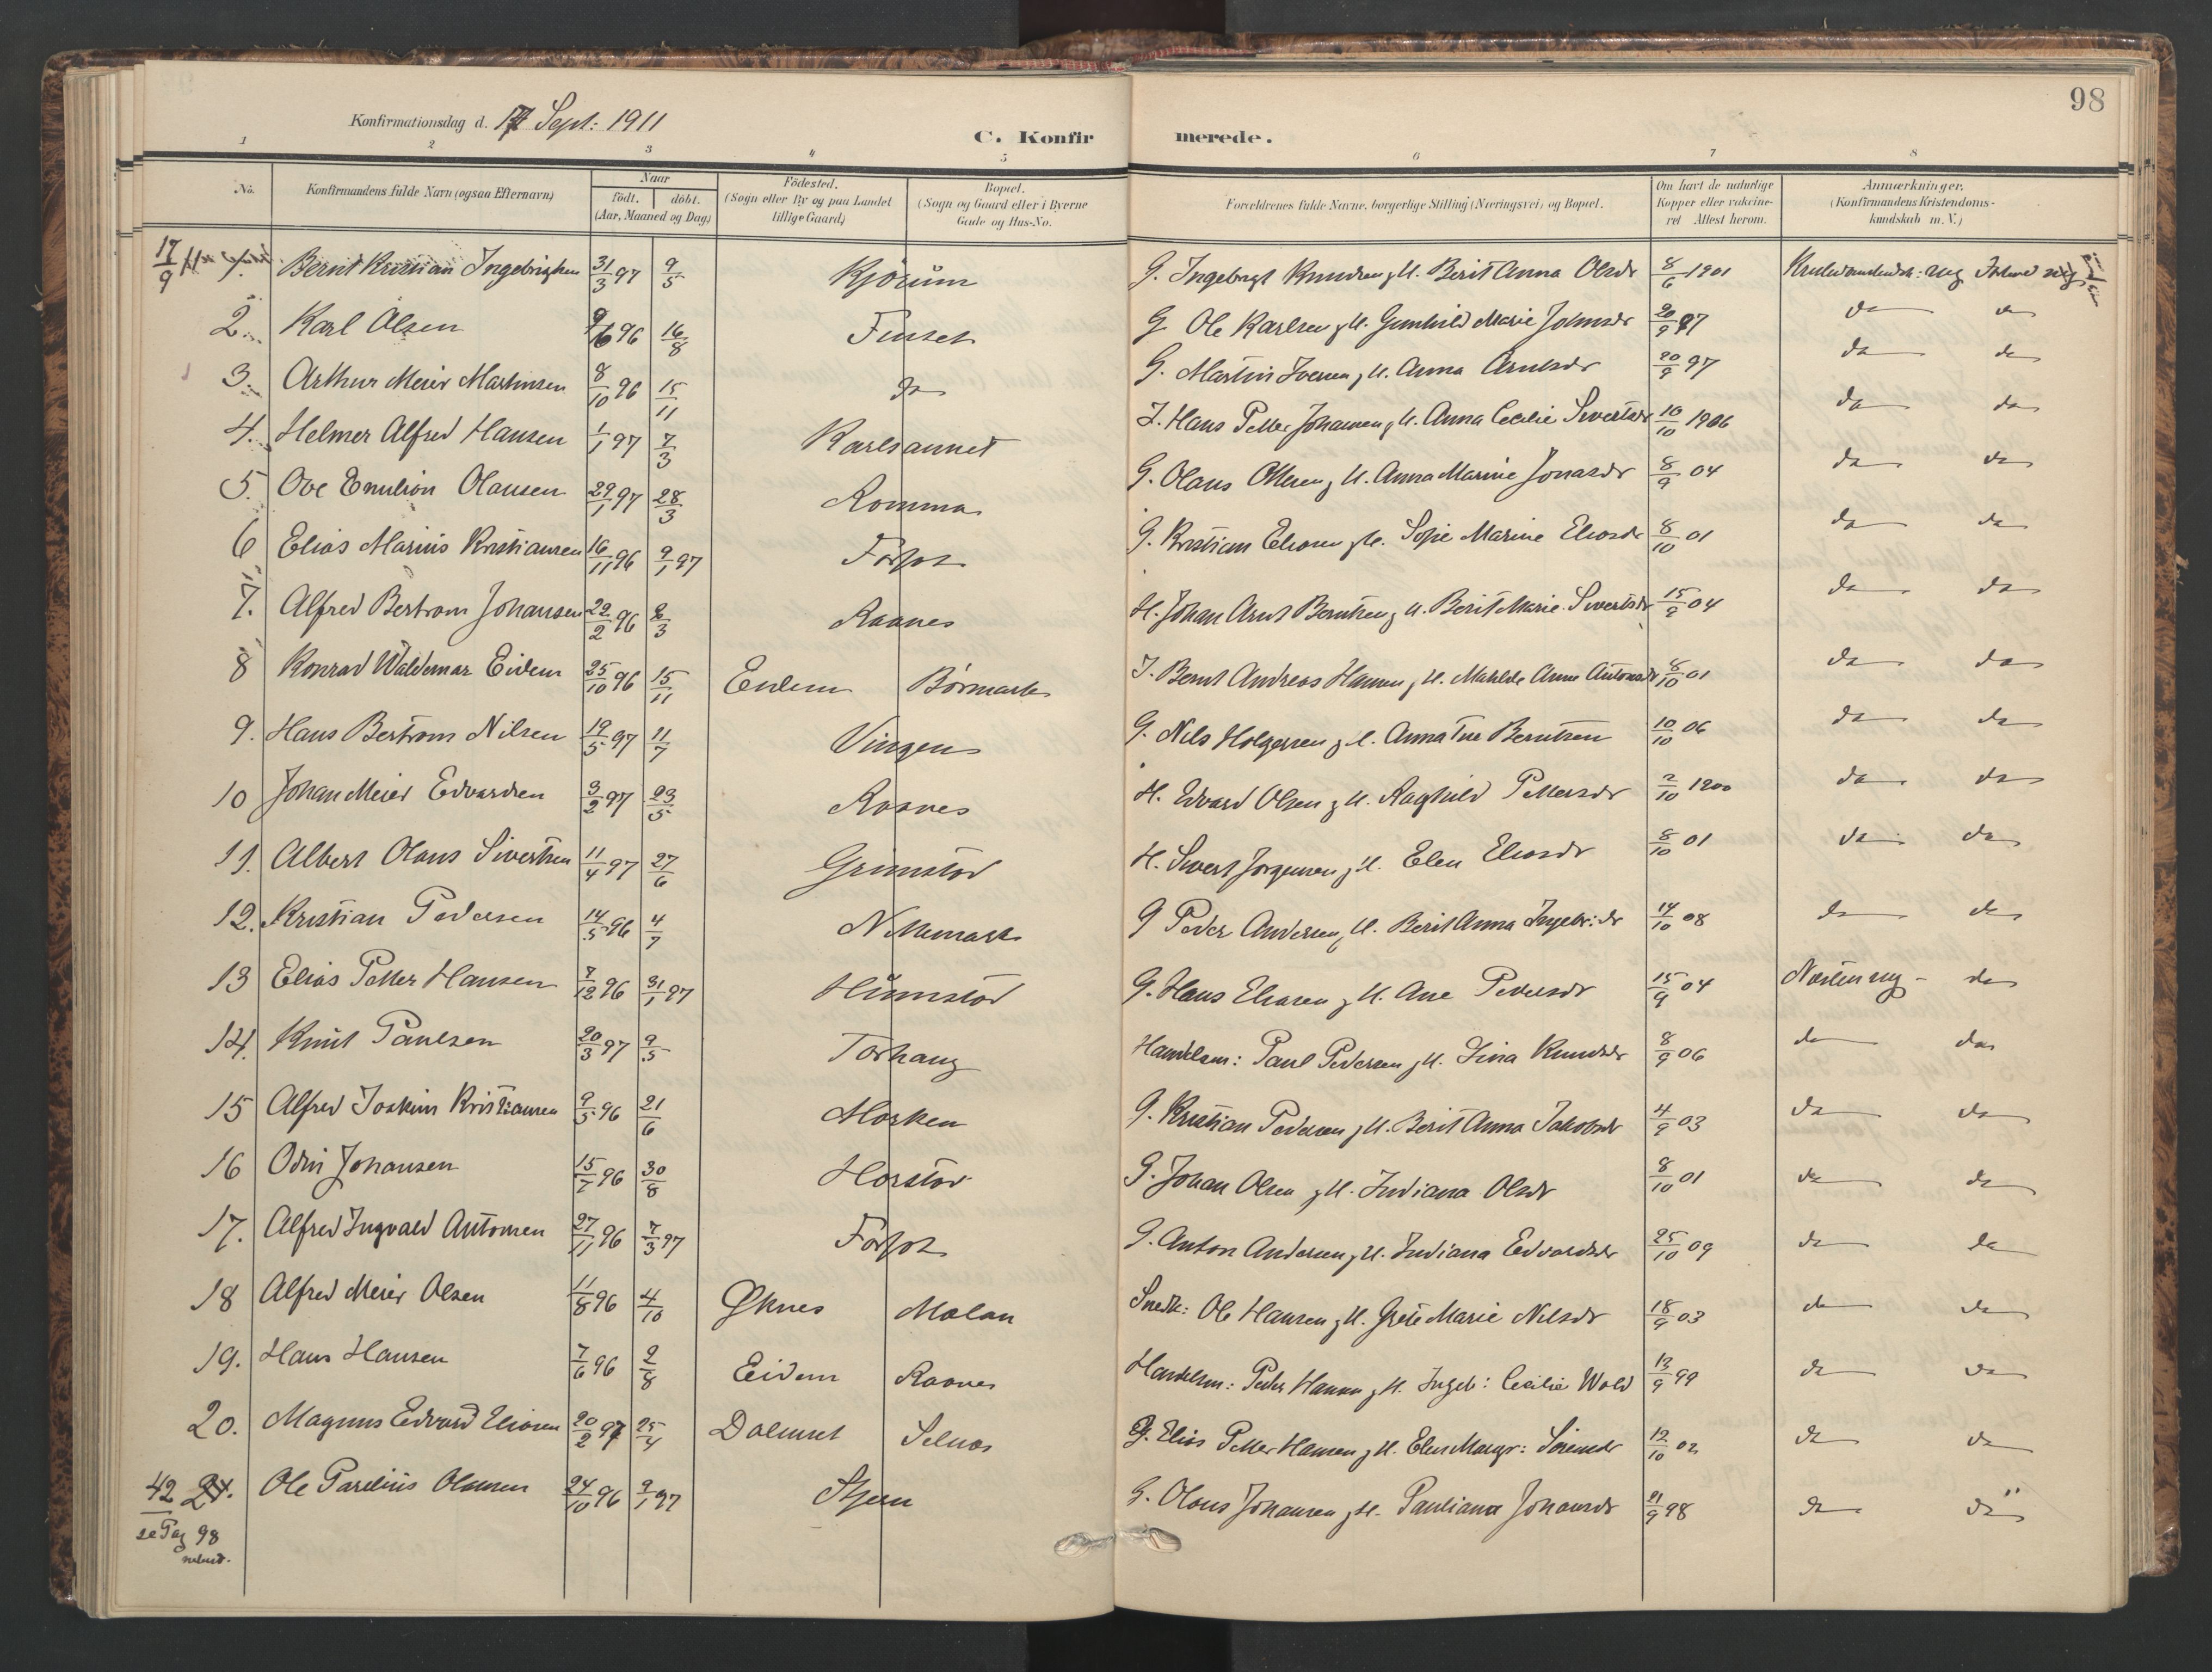 98
Konfirmationsdag d. 17 Sept: 1911
C. Konfirmerede.
1 2 3 4 5 6 7 8
No. Konfirmandens fulde Navn (ogsaa Efternavn) Naar født. døbt. (Aar, Maaned og Dag) Fødested. (Sogn eller By og paa Landet tillige Gaard) Bopæl. (Sogn og Gaard eller i Byerne Gade og Hus-No.) Forældrenes fulde Navne, borgerlige Stilling (Næringsvei) og Bopæl. Om havt de naturlige Kopper eller vakcineret Attest herom. Anmærkninger. (Konfirmandens Kristendomskundskab m. V.)
17/9 Bernt Kristian Ingebrigtsen 31/3 97 9/5 Kjørum G. Ingebrigt Knudsen, H. Berit Anna Olsdr 8/6 1901
2. Karl Olsen 96 16/8 Finset G. Ole Karlsen, H. Gunhild Marie Johnsdr 20/9 97 do do
3. Arthur Meier Martinsen 8/10 96 15/11 do G. Martin Iversen, H. Anna Arntsdr 20/9 97 do do
4. Helmer Alfred Hansen 1/1 97 7/3 Karlsaunet I. Hans Petter Johansen, H. Anna Cecilie Sivertsdr 10/10 1906 do do
5. Ove Emilion Olausen 29/1 97 28/3 Romma G. Olaus Ottesen, H. Anna Marine Jonasdr 8/9 04 do do
6 Elias Marius Kristiansen 16/11 96 9/1 97 Forfot G. Kristian Eliasen, H. Sofie Marine Eliasdr 8/10 01 do do
7. Alfred Bertrom Johansen 22/2 96 8/3 Raanes H. Johan Arnt Berntsen, H. Berit Marie Sivertsdr 15/9 04 do do
8 Konrad Waldemar Eidem 25/10 96 15/11 Eidem Börmark I. Bernt Andreas Hansen, H. Matilde Anna Antonsdr 8/10 01 do do
9. Hans Bertrom Nilsen 19/5 97 11/7 Vingen G. Nils Holgersen, H. Anna Tine Berntsen 10/10 06 do do
10 Johan Meier Edvardsen 3/2 97 23/5 Raanes H. Edvard Olsen, H. Raghild Pettersdr 2/10 1900 do do
11. Albert Olaus Sivertsen 11/4 97 27/6 Grimstad H. Sivert Jørgensen, H. Elen Eliasdr 8/10 01 do do
12. Kristian Pedersen 14/5 96 4/7 Nittemark G Peder Andersen, H. Berit Anna Ingebr:dr 14/10 08 do do
13 Elias Petter Hansen 7/12 96 31/1 97 Hünstad G. Hans Eliasen, H. Ane Pedersdr 15/9 04 Næsten mg - do
14. Knut Paulsen 20/3 97 9/5 Torhaug Handelsm: Paul Pedersen, H. Lina Knudsdr 8/9 06 do do
15 Alfred Joakim Kristiansen 9/5 96 21/6 Morken G. Kristian Pedersen, H. Berit Anna Jakobsdr 4/9 03 do do
16 Odin Johansen 15/7 96 30/8 Horstad G. Johan Olsen, H. Indiana Olsdr 8/10 01 do do
17. Alfred Ingvald Antonsen 27/11 96 7/3 97 Forfot G. Anton Andersen, H. Indiana Edvardsdr 25/10 09 do do
18 Alfred Meier Olsen 11/8 96 4/10 Øknes Malan Snedk: Ole Hansen, H. Grete Marie Nilsdr 18/9 03 do do
19. Hans Hansen 7/6 96 2/8 Eidem Raanes Handelsm: Peder Hansen, H. Ingeb: Cecilie Wold 13/9 99 do do
20. Magnus Edvard Eliasen 20/2 97 25/4 Dalmset Selnæs G. Elias Petter Hansen, H. Elen Margr: Sörensdr 12/10 02 do do
42 21. Ole Parelius Olausen 24/10 96 9/1 97 Stjern G. Olaus Johansen, H. Pauliana Johansdr 21/9 98 do do
se Pag 98
nedenst.